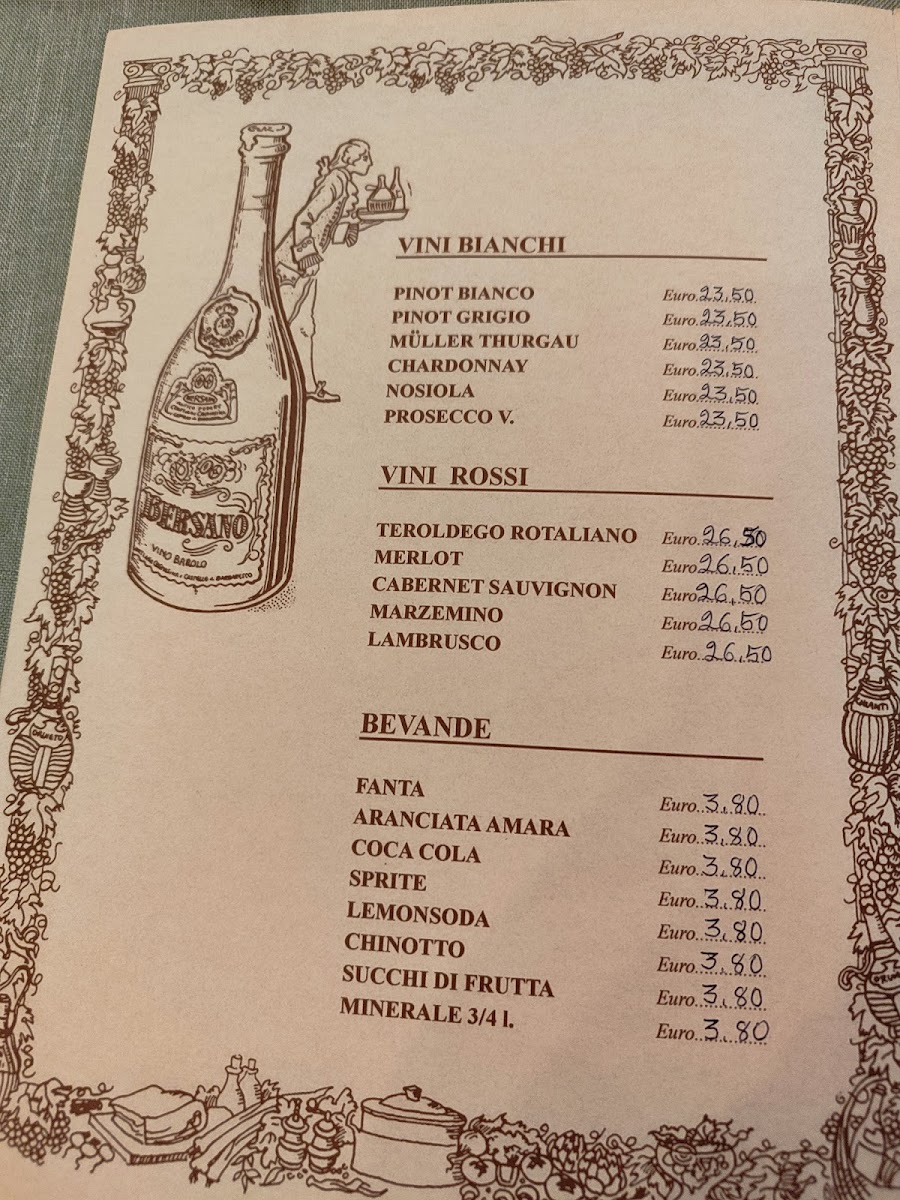 VINI BIANCHI
PINOT BIANCO Euro 23,50
PINOT GRIGIO Euro 23,50
MÜLLER THURGAU Euro 23,50
CHARDONNAY Euro 23,50
NOSIOLA Euro 23,50
PROSECCO V. Euro 23,50
VINI ROSSI
TEROLDEGO ROTALIANO Euro 26,50
MERLOT Euro 26,50
CABERNET SAUVIGNON Euro 26,50
MARZEMINO Euro 26,50
LAMBRUSCO Euro 26,50
BEVANDE
FANTA Euro 3,80
ARANCIATA AMARA Euro 3,80
COCA COLA Euro 3,80
SPRITE Euro 3,80
LEMONSODA Euro 3,80
CHINOTTO Euro 3,80
SUCCHI DI FRUTTA Euro 3,80
MINERALE 3/4 l. Euro 3,80
BERSANO
BERSANO
VINO BAROLO